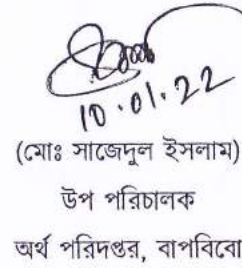 10.01.22
(মোঃ সাজেদুল ইসলাম)
উপ পরিচালক
অর্থ পরিদপ্তর, বাপবিবো